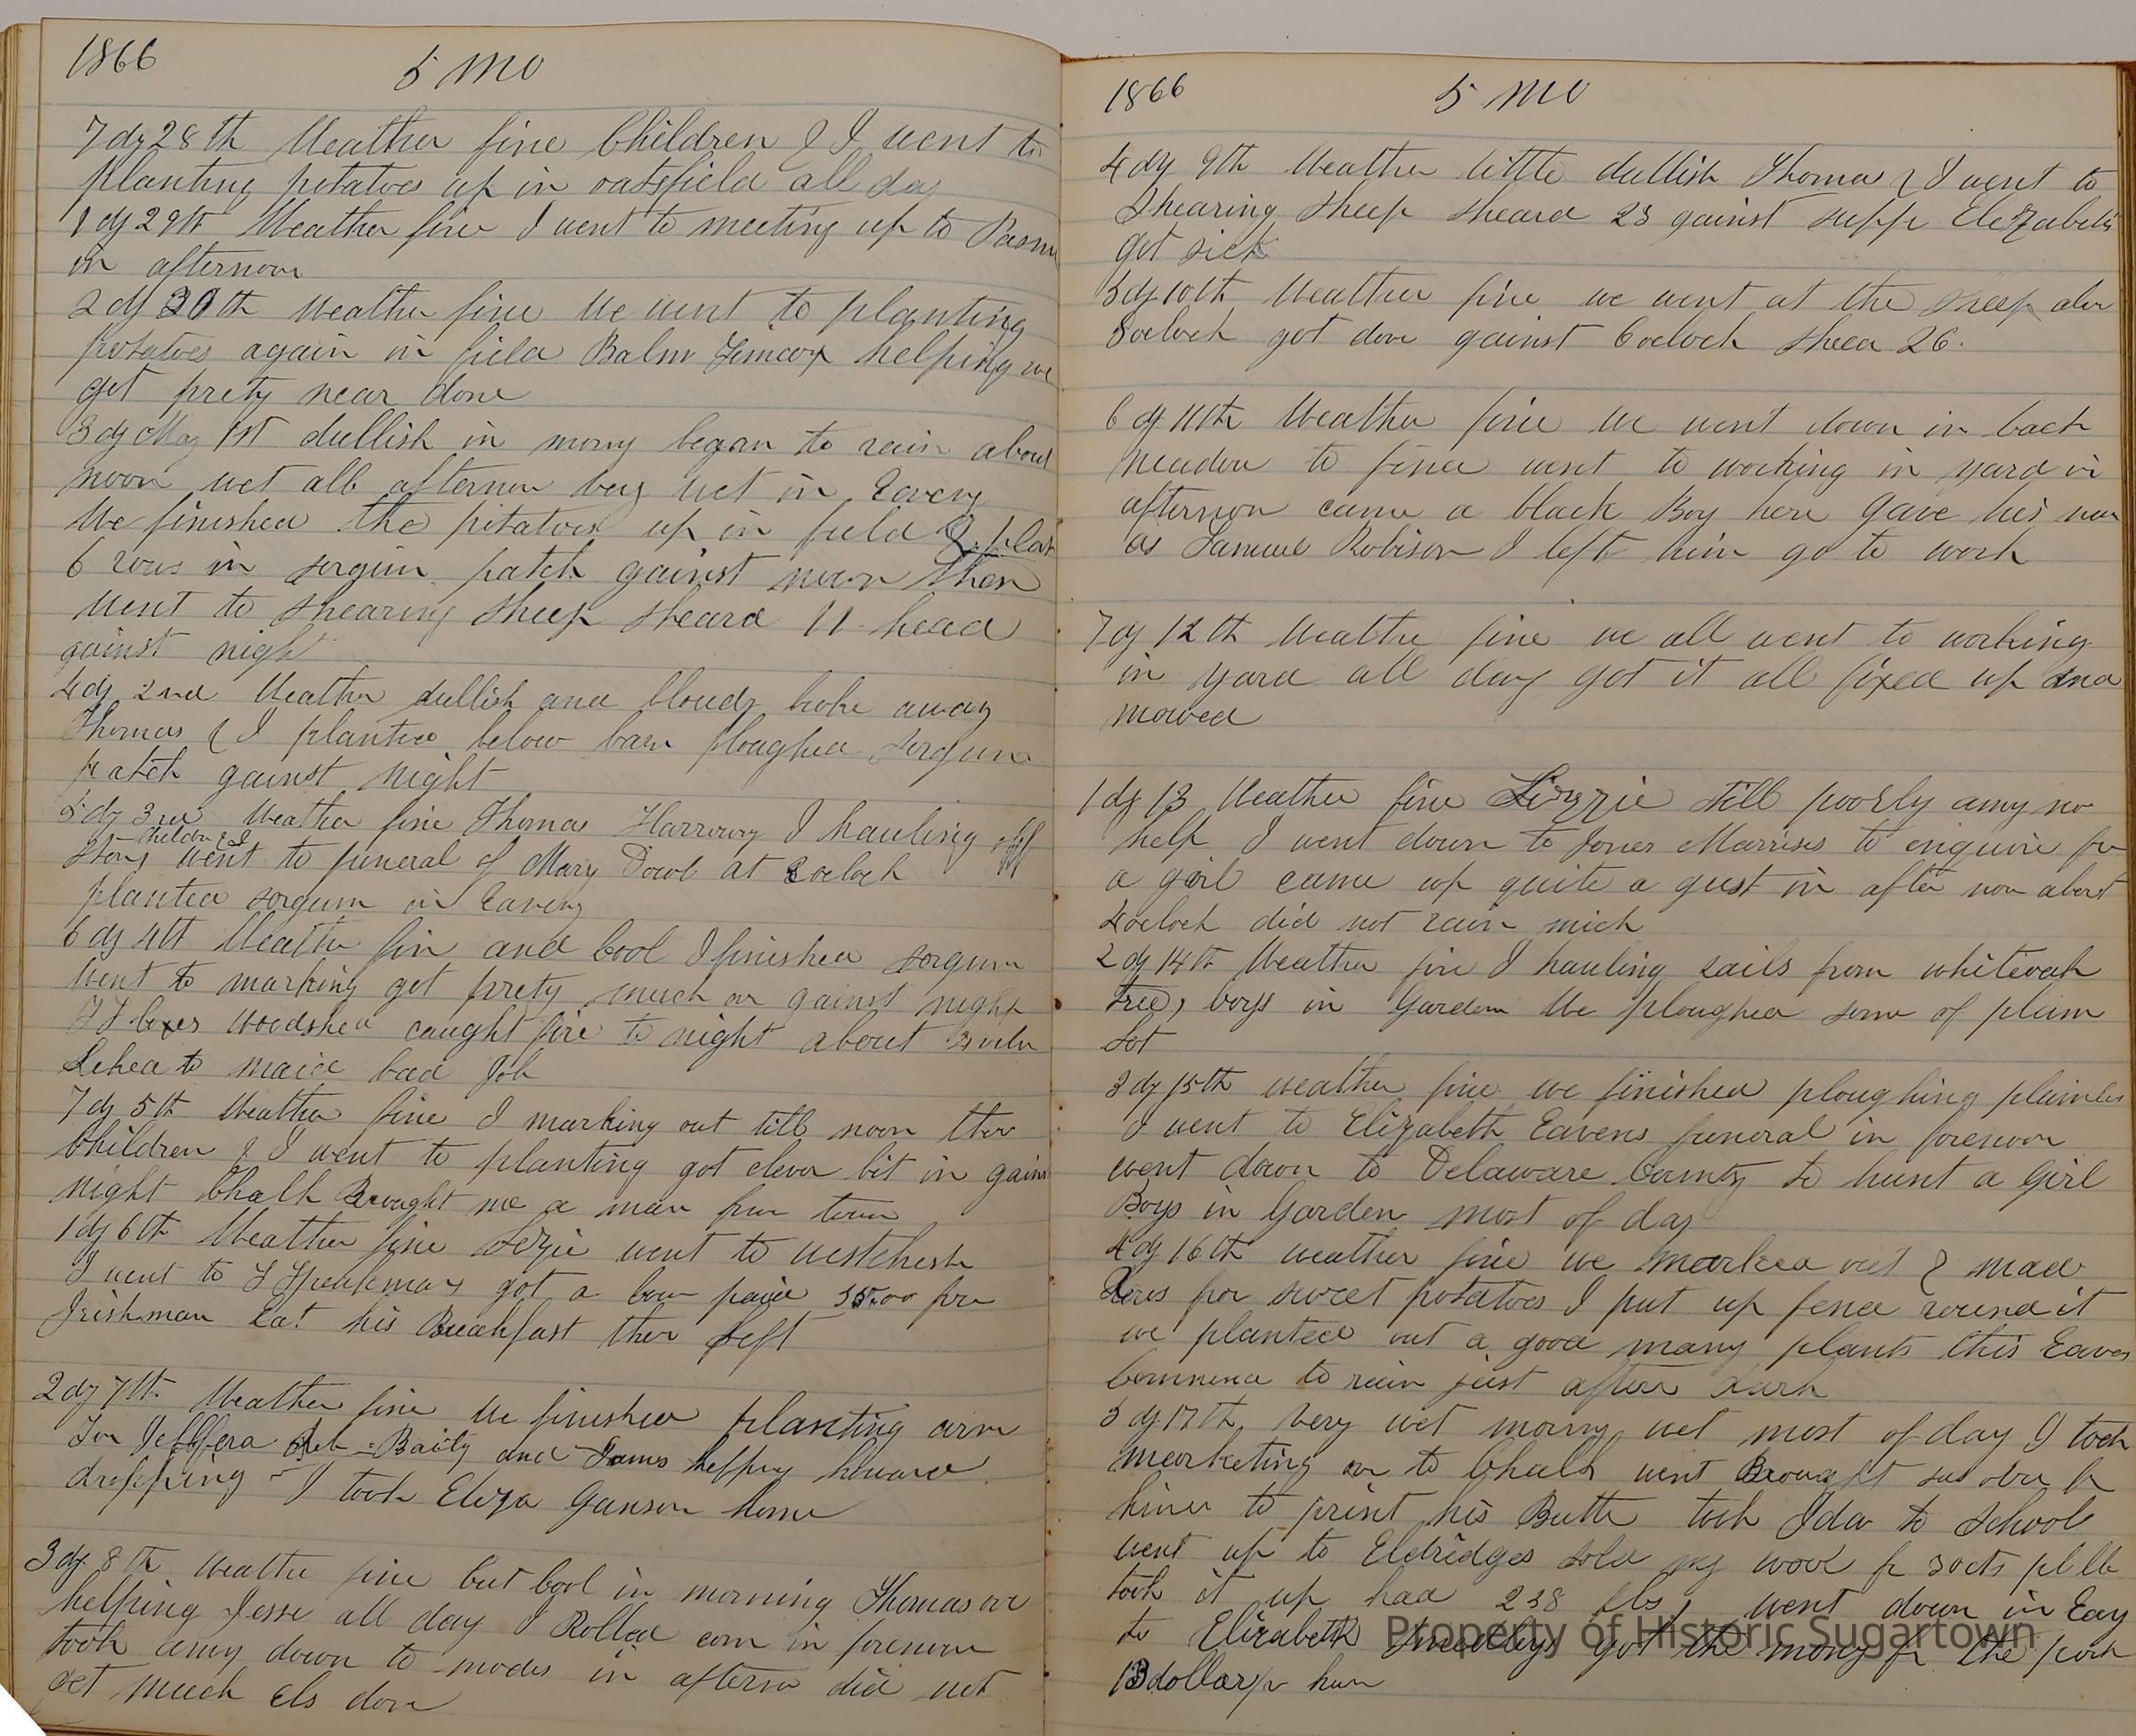 1866 5 mo
7 dy 28th Weather fine Children & I went to
planting potatoes up in oatsfield all day
1 dy 29th Weather fine I went to meeting up to
in afternoon
2 dy 30th Weather fine We went to planting
potatoes again in field helping we
got prety near done
3 dy May 1st dullish in morng began to rain about
noon wet all afternoon very wet in Eaveng
We finished the potatoes up in field &
6 rows in sorgum patch gainst noon then
went to shearing sheep sheard 11 head
gainst night
4 dy 2nd Weather dullish and Cloudy broke away
Thomas & I planted below barn ploughed sorgum
patch gainst night
5 dy 3rd Weather fine Thomas Harrowing I hauling off
Children & I
stony went to funeral of Mary at oclock
planted sorgum in Eaveng
6 dy 4th Weather fin and Cool I finished sorgum
went to marking got prety much on gainst night
woodshed caught fire to night about
to maid bad Job
7 dy 5th Weather fine I marking out till noon then
Children & I went to planting got clever bit in gainst
night Chalk Brought me a man from town
1 dy 6th Weather fine Lizie went to westchester
I went to got a cow paid for
Irishman Eat his Breakfast then left
2 dy 7th Weather fine We finished planting corn
and helping
dropping - I took Eliza Garison home
3 dy 8th Weather fine but Cool in morning Thomas over
helping Jesse all day I Rolled corn in forenoon
took amy down to in afternoon did not
get much els don
1866 5 mo
4 dy 9th Weather little dullish Thomas & I went to
Shearing Sheep sheard 23 gainst supp Elizabeth
got sick
5 dy 10th Weather fine we went at the sheep
8 oclock got done gainst 6 oclock sheed 26.
6 dy 11th Weather fine We went down in back
meadow to fence went to working in yard in
afternoon came a black Boy here gave his name
as Samuel Robison I left him go to work
7 dy 12th Weather fine we all went to working
in yard all day got it all fixed up and
mowed
1 dy 13 Weather fine Lizzie still poorly amy no
help I went down to Jones Marrises to enquire for
a girl came up quite a gust in after noon about
4 oclock did not rain mich
2 dy 14th Weather fine I hauling rails from whiteoak
tree, boys in Garden We ploughed some of
Lot
3 dy 15th weather fine we finished ploughing
I went to Elizabeth Eavens funeral in forenoon
went down to Delaware County to hunt a Girl
Boys in Garden most of day
4 dy 16th weather fine we marked out & mad
Rows for sweet potatoes I put up fence round it
we planted out a good many plants this Eaven
Commenced to rain just after dark
5 dy 17th, very wet morng wet most of day I took
marketing over to Chalk went Brought
to print his Butter took Ida to School
went up to Eldridges sold my wool
took it up had 238 lbs, went down in Eavg
to Elizabeth Smedleys got the mony for the pork
13 dollar pr hun
Property of Historic Sugartown